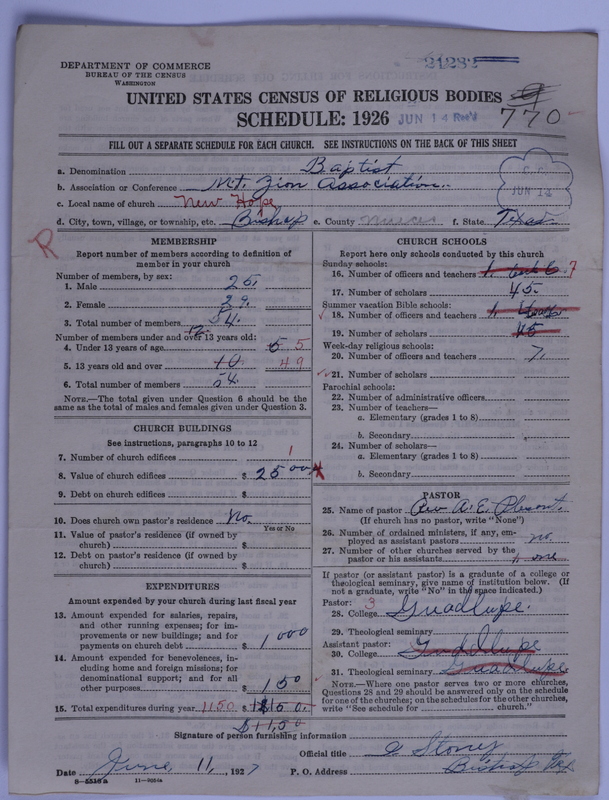 DEPARTMENT OF COMMERCE
BUREAU OF THE CENSUS
WASHINGTON
21282
UNITED STATES CENSUS OF RELIGIOUS BODIES
SCHEDULE: 1926
JUN 14
770
FILL OUT A SEPARATE SCHEDULE FOR EACH CHURCH. SEE INSTRUCTIONS ON THE BACK OF THIS SHEET
a. Denomination Baptist
b. Association or Conference Mt. Zion Association.
c. Local name of church New Hope
JUN 14
d. City, town, village, or township, etc. Bishop e. County Nueces f. State Texas
R
MEMBERSHIP
Report number of members according to definition of
member in your church
Number of members, by sex:
1. Male 25.
2. Female 29.
3. Total number of members 54.
Number of members under and over 13 years old:
4. Under 13 years of age 5 5
5. 13 years old and over 10 49
6. Total number of members 54.
NOTE.—The total given under Question 6 should be
the same as the total of males and females given under Question 3.
CHURCH BUILDINGS
See instructions, paragraphs 10 to 12
7. Number of church edifices 1
8. Value of church edifices $ 2500
9. Debt on church edifices $
10. Does church own pastor's residence No.
Yes or No
11. Value of pastor's residence (if owned by
church) $
12. Debt on pastor's residence (if owned by
church) $
EXPENDITURES
Amount expended by your church during last fiscal year
13. Amount expended for salaries, repairs,
and other running expenses; for im-
provements or new buildings; and for
payments on church debt $ 1000
14. Amount expended for benevolences, in-
cluding home and foreign missions; for
denominational support; and for all
other purposes $ 150
15. Total expenditures during year 1150 $ 1150.
$ 11,50
CHURCH SCHOOLS
Report here only schools conducted by this church
Sunday schools:
16. Number of officers and teachers 7
17. Number of scholars 45.
Summer vacation Bible schools:
18. Number of officers and teachers
19. Number of scholars 45
Week-day religious schools:
20. Number of officers and teachers 7.
21. Number of scholars
Parochial schools:
22. Number of administrative officers
23. Number of teachers—
a. Elementary (grades 1 to 8)
b. Secondary
24. Number of scholars—
a. Elementary (grades 1 to 8)
b. Secondary
PASTOR
25. Name of pastor Rev A. E.
(If church has no pastor, write "None")
26. Number of ordained ministers, if any, em-
ployed as assistant pastors no.
27. Number of other churches served by the
pastor or his assistants one
If pastor (or assistant pastor) is a graduate of a college or
theological seminary, give name of institution below. (If
not a graduate, write "No" in the space indicated.)
Pastor: 3
28. College Guadlupe.
29. Theological seminary
Assistant pastor:
30. College Guadlupe
31. Theological seminary Guadlupe
NOTE.—Where one pastor serves two or more churches,
Questions 28 and 29 should be answered only on the schedule
for one of the churches; on the schedules for the other churches,
write "See schedule for church."
Signature of person furnishing information
Official title Storey
Date June, 11, 1927 P. O. Address Bishop Tex
8—5518a 11—9224a